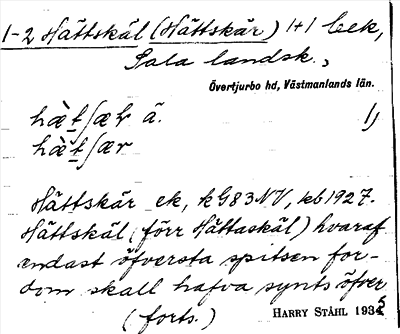 1-2 Hättskäl (Hättskär) 1+1 bek,
Sala landsk.,
Övertjurbo hd, Västmanlands län.
hæ̀t̠ʃæł ä. 1)
hæ̀t̠ʃær
Hättskär ek, kG83NV, kb1927.
Hättskäl (förr Hättaskäl) hvaraf
endast öfversta spitsen for-
dom skall hafva synts öfver
(forts.) HARRY STÅHL 1935